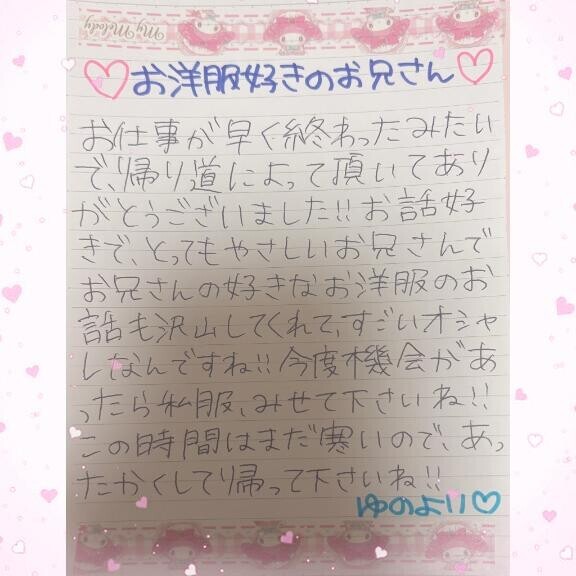 My Melody
♡お洋服好きのお兄さん♡
お仕事が早く終わったみたい
で、帰り道によって頂いてあり
がとうございました!!お話好
きで、とってもやさしいお兄さんで
お兄さんの好きなお洋服のお
話も沢山してくれて、すごいオシャ
レなんですね!!今度機会があ
ったら私服、みせて下さいね!!
この時間はまだ寒いので、あっ
たかくしてり帰って下さいね!!
ゆのより♡